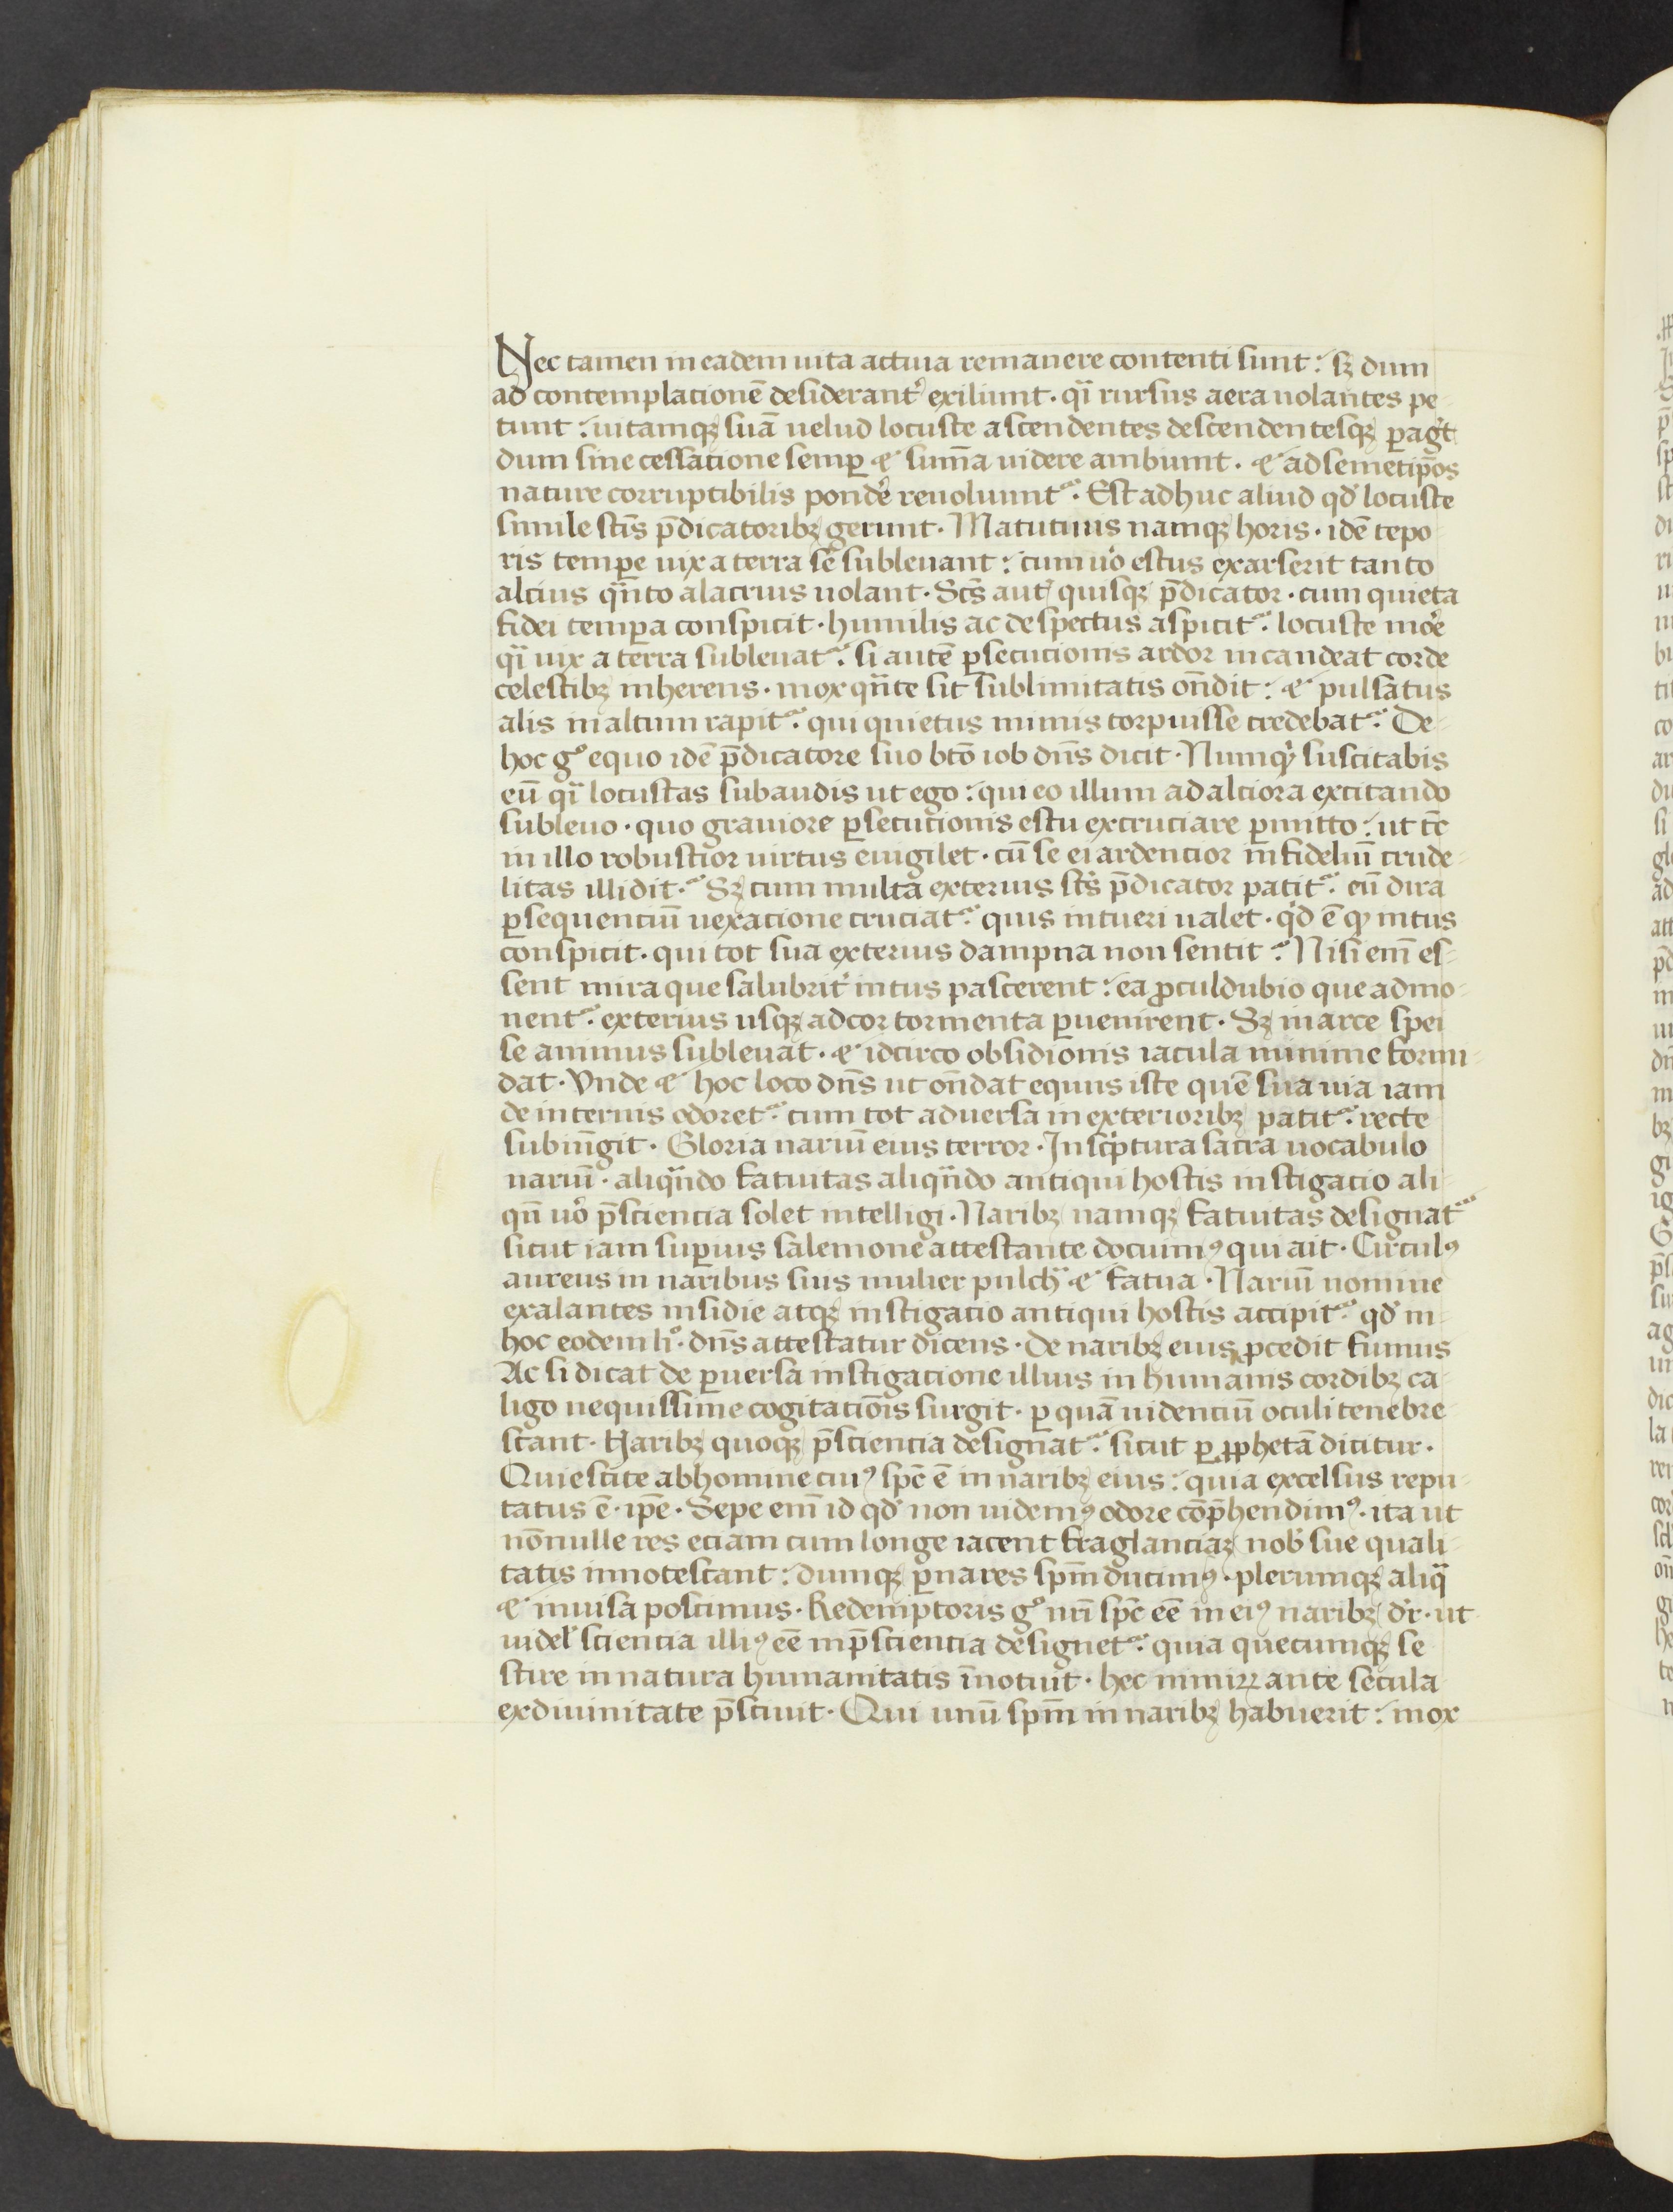 Nec tamen in eadem uita actiua remanere contenti sunt: sꝫ dum
ad contemplacionē desiderant᷑ exiliunt· qͣi rursus aera uolantes pe-
tunt: uitamqꝫ suā uelud locuste ascendentes descendentesqꝫ ꝑagūt
dum sine cessatione semꝑ & sum̄a uidere ambiunt· & ad semetip̄os
nature corruptibilis pondē reuoluunt᷑· Est adhuc aliud qd̓ locuste
simile sc̄is p̄dicatoribꝫ gerunt· Matutinis namqꝫ horis· idē tepo-
ris temꝑe uix a terra se subleuant: cum uo̓ estus exarserit tanto
alcius qͣnto alacrius uolant· Sc̄s aut̄ quisqꝫ p̄dicator· cum quieta
fidei temꝑa conspicit· humilis ac despectus aspicit᷑· locuste mo̓e
qͣi uix a terra subleuat᷑· si autē ꝑsecucionis ardor incandeat corde
celestibꝫ inherens· mox qͣnte sit sublimitatis on̄dit: & pulsatus
alis in altum rapit᷑· qui quietus nimis torpuisse credebat᷑· De-
hoc gͦ equo idē p̄dicatore suo bt̄o iob dn̄s dicit· Numqͥ suscitabis
eū qͣi locustas subaudis ut ego: qui eo illum ad alciora excitando
subleuo· quo grauiore ꝑsecucionis estu excruciare ꝑmitto: ut tc̄
in illo robustior uirtus euigilet· cū se ei ardencior infideliū crude-
litas illidit· Sꝫ cum multa exterius sc̄s p̄dicator patit᷑· eū dira
ꝑsequenciū uexacione cruciat᷑· quis intueri ualet· qͥd ē qͦ intus
conspicit· qui tot sua exterius dampna non sentit· Nisi em̄ es-
sent mira que salubrit̓ intus pascerent: ea ꝓculdubio que admo-
nent᷑· exterius usqꝫ ad cor tormenta ꝑuenirent· Sꝫ in arce spei
se animus subleuat· & idcirco obsidionis iacula minime formi-
dat· Vnde & hoc loco dn̄s ut on̄dat equus iste quē sua uia iam
de internis odoret᷑· cum tot aduersa in exterioribꝫ patit᷑· recte
subiungit· Gloria nariū eius terror· In scͥptura sacra uocabulo
nariū· aliqͣndo fatuitas aliqͣndo antiqui hostis instigacio ali-
qn̄ uo̓ p̄sciencia solet intelligi· Naribꝫ namqꝫ fatuitas designat᷑
sicut iam suꝑius salemone attestante docuimꝰ qui ait· Circulꝰ
aureus in naribus suis mulier pulchͣ & fatua· Nariū nomine
exalantes insidie atqꝫ instigacio antiqui hostis accipit᷑· qd̓ in-
hoc eodem liͦ· dn̄s attestatur dicens· De naribꝫ eius ꝓcedit fumus
Ac si dicat de ꝑuersa instigacione illius in humanis cordibꝫ ca-
ligo nequissime cogitacio̅is surgit· ꝑ quā uidenciū oculi tenebre-
scant· Naribꝫ quoqꝫ p̄sciencia designat᷑· sicut ꝑ ꝓphetā dicitur·
Quiescite ab homine cuiꝰ spc̄ ē in naribꝫ eius: quia excelsus repu-
tatus ē· ipē· Sepe em̄ id qd̓ non uidemꝰ odore cōp̄hendimꝰ· ita ut
nōnulle res eciam cum longe iacent fraglanciaꝫ nob̓ sue quali-
tatis innotescant: dumqꝫ ꝑ nares spm̄ ducimꝰ· plerumqꝫ aliqͣ
& inuisa poscimus· Redemptoris gͦ nr̄i spc̄ eē in eiꝰ naribꝫ d̓r· ut
uidel̓ sciencia illiꝰ eē in p̄sciencia designet᷑· quia quecumqꝫ se
scire in natura humanitatis īnotuit· hec nimiꝝ ante secula
ex diuinitate p̄sciuit· Qui unū spm̄ in naribꝫ habuerit: mox